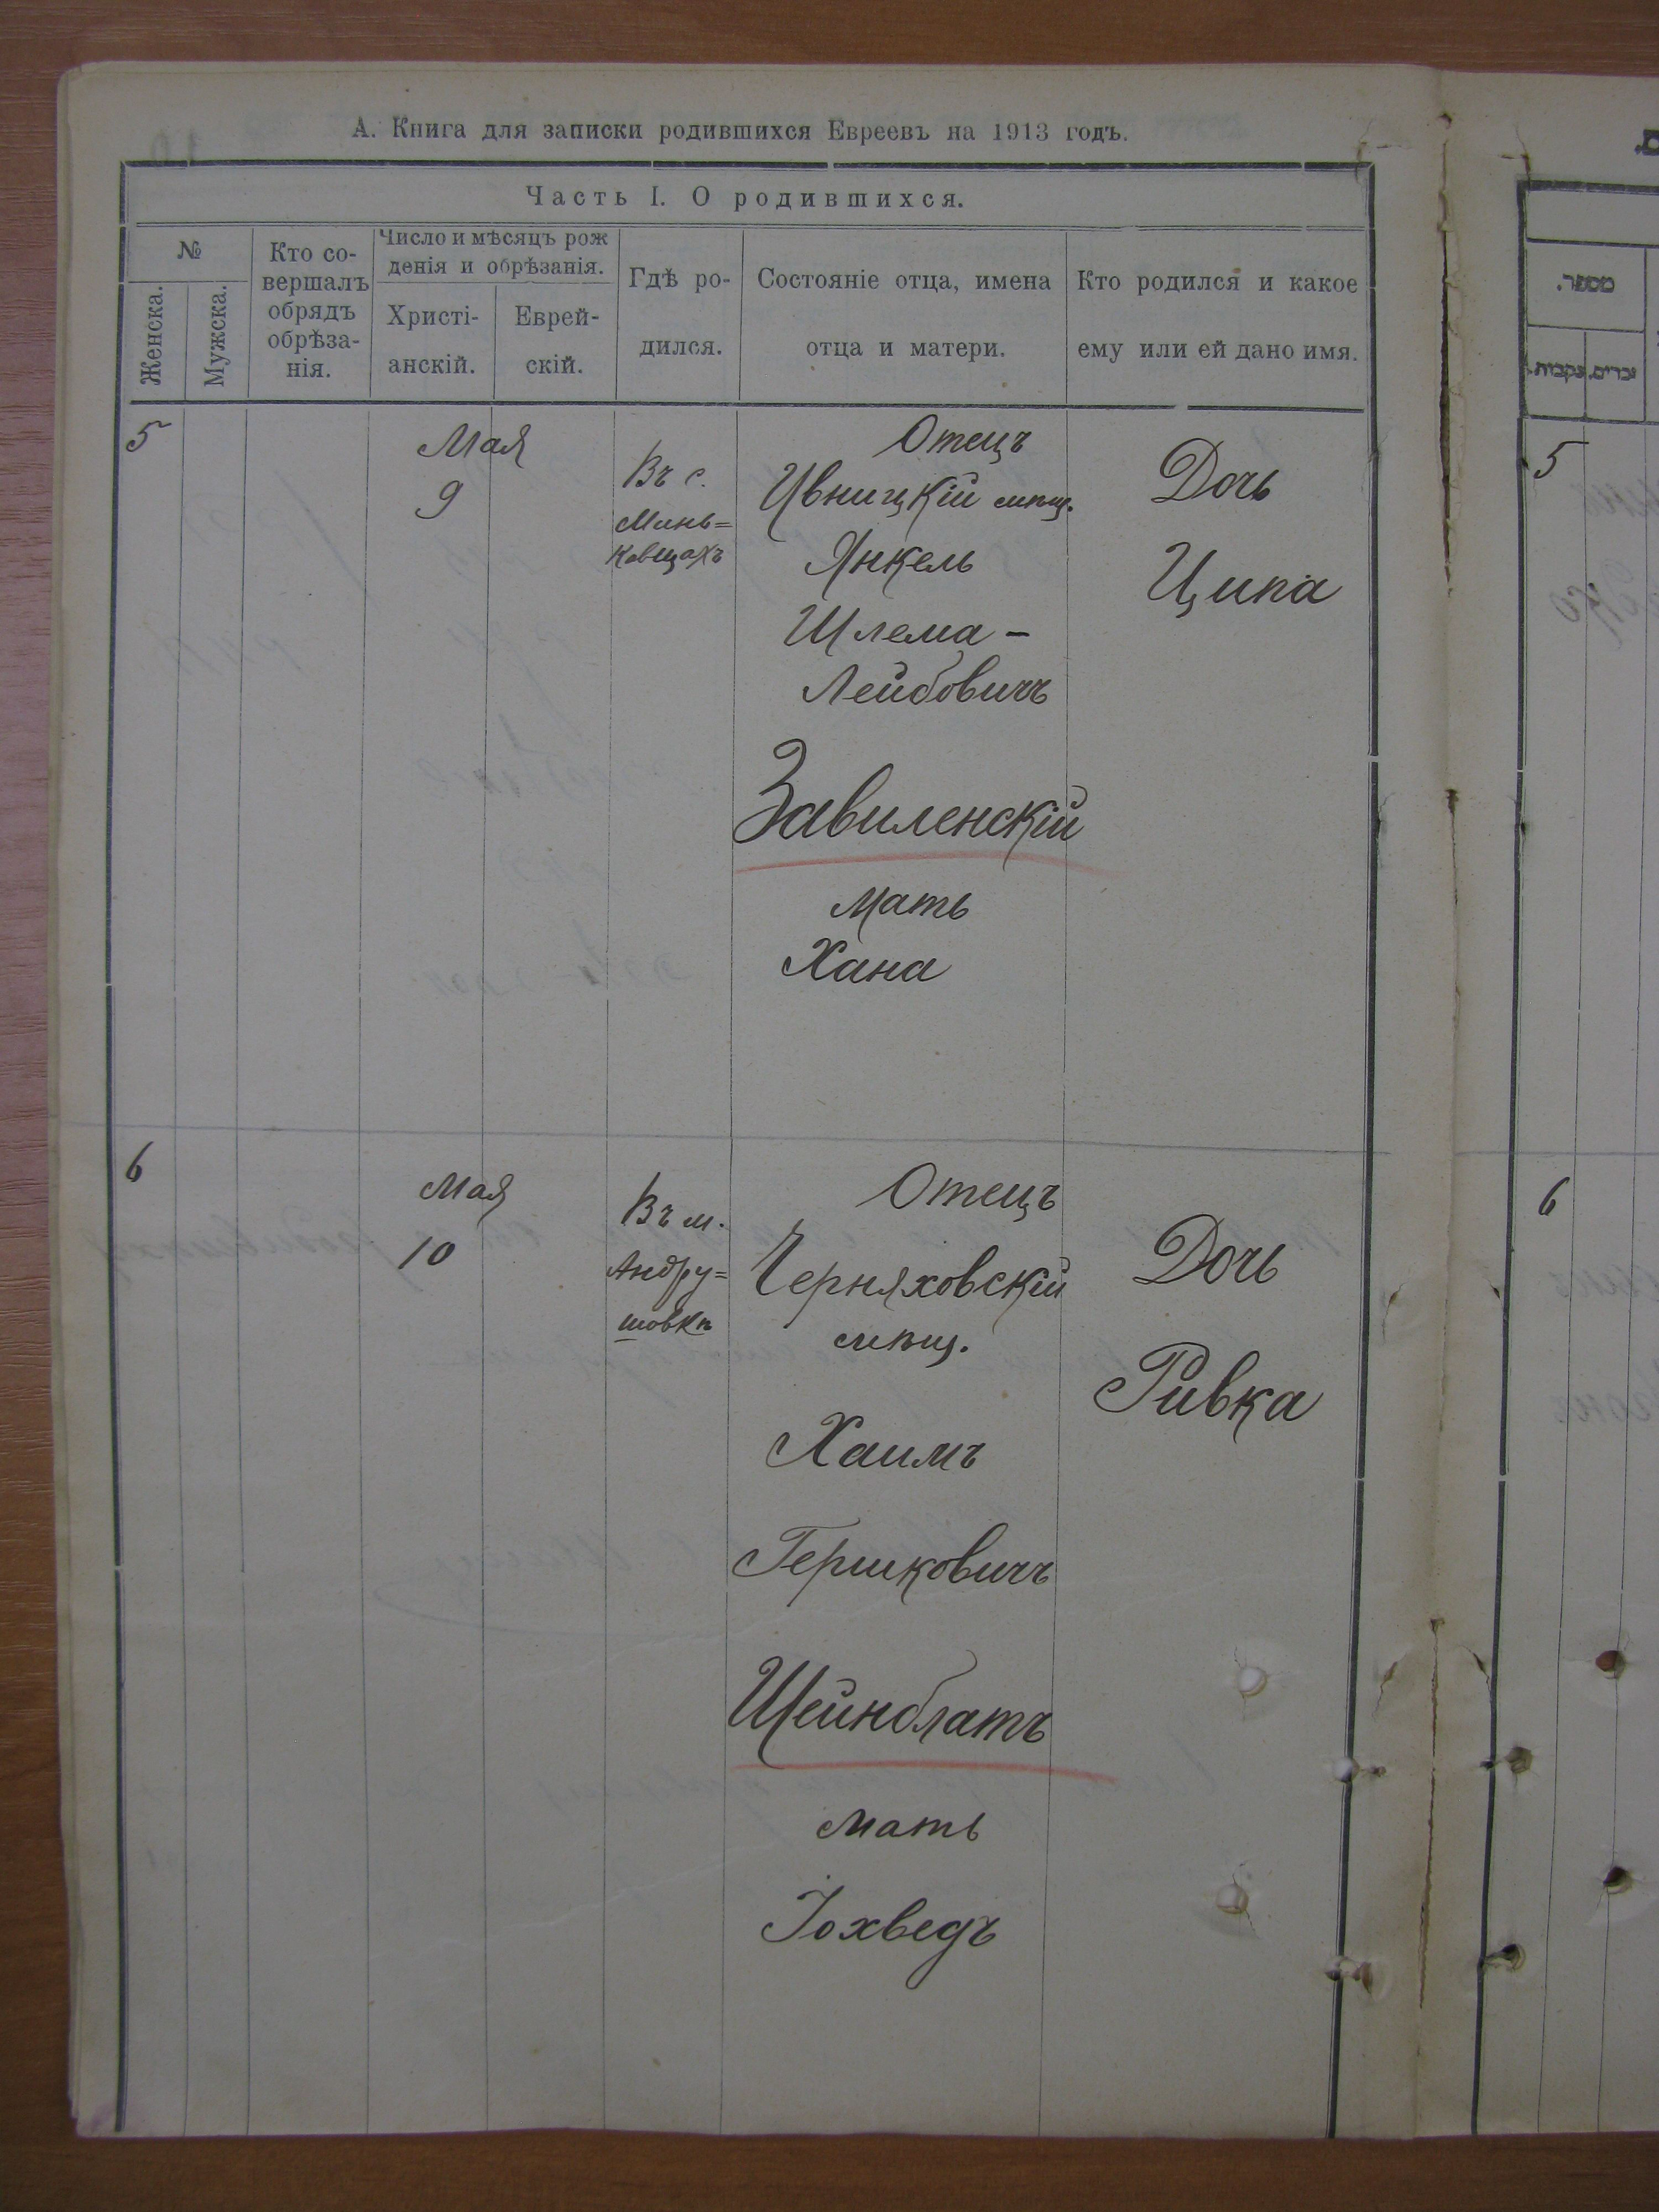 А. Книга для записки родившихся Евреевъ на 1913 годъ.
Часть I. О родившихся.
№
Женска.
Мужска.
Кто со-
вершалъ
обрядъ
обрѣза-
нія.
Число и мѣсяцъ рож
денія и обрѣзанія.
Христі-
анскій.
Еврей-
скій.
Гдѣ ро-
дился.
Состояніе отца, имена
отца и матери.
Кто родился и какое
ему или ей дано имя.
5
Мая
9
Въ с.
Минь=
ковцахъ
Отецъ
Ивницкій мѣщ.
Янкель
Шлема-
Лейбовичъ
Завиленскій
мать
Хана
Дочь
Ципа
6
Мая
10
Въ м.
Андру=
шовкѣ
Отецъ
Черняховскій
мѣщ.
Хаимъ
Гершковичъ
Шейнблатъ
мать
Іохведъ
Дочь
Ривка
מספר.
זכרים.
נקבות.
5
6